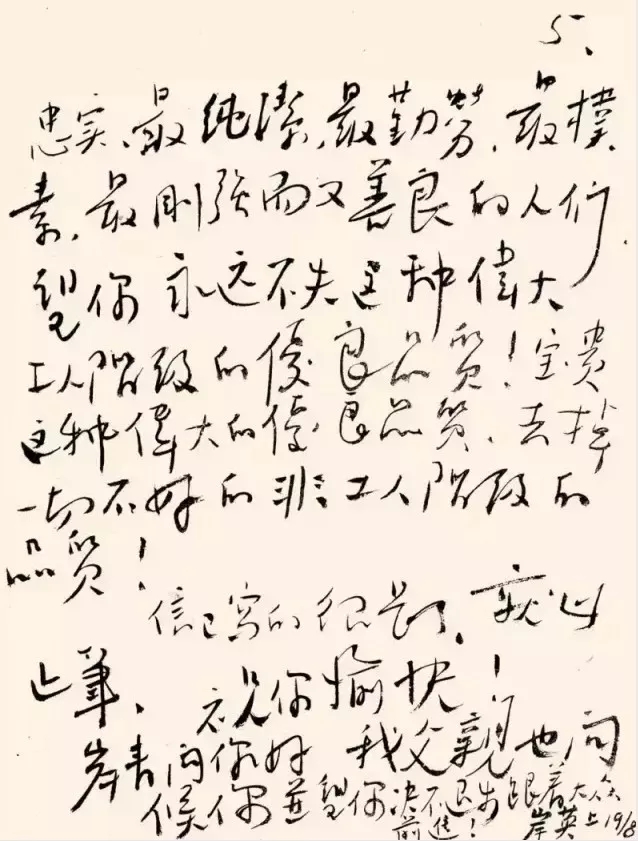 5、
忠实、最純潔、最勤勞、最樸
素、最刚强而又善良的人们
望你永远不失这种偉大
工人階级的優良品質！宝贵
这种偉大的優良品質、去掉
一切不好的非工人階级的
品質！
信已写的很長了、就此
止筆、祝你愉快！
岸青问你好 我父親也问
候你並望你决不退步跟着大众
前進！岸英上19/8